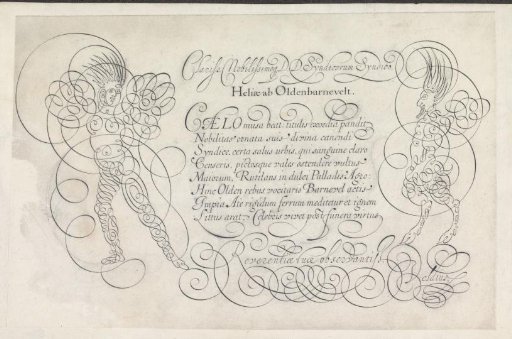 Nobilissimoq D.D. Syndicorum Syndico
Heliæ ab Oldenbarnevelt.
CÆLO musa beat, titulis exedra pandit
Nobilitas ornata suis divina canendi
Syndice, certa salus urbis, qui sanguine claro
Censeris, pictosque vales ostendere vultus
Maiorum, Rutilans in dulci Palladis Agro:
Hinc Olden rebus vocitaris Barnevel actis
Impia Ats rigidum ferrum meditetur et ignem
Situs arat: Celebris vivet post funera virtus
Reverentiæ tuæ observantiss.